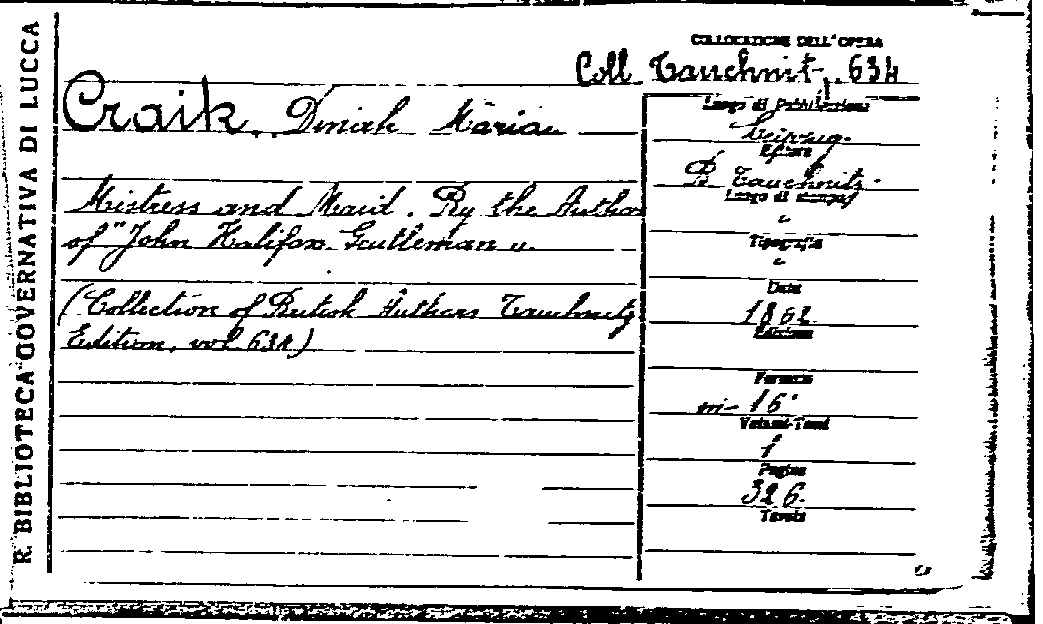 R. BIBLIOTECA GOVERNATIVA DI LUCCA
COLLOCAZIONE DELL'OPERA
Coll. Tauchnitz, 634
Craik, Dinah Maria
Mistress and Maid. By the Author
of "John Halifax Gentleman".
(Collection of British Authors Tauchnitz
Edition, vol. 634)
Luogo di Pubblicazione
Leipzig.
Editore
B. Tauchnitz.
Luogo di stampa
"
Tipografia
"
Data
1862
Edizione
Formato
in-16°
Volumi-Tomi
1
Pagine
326.
Tavole